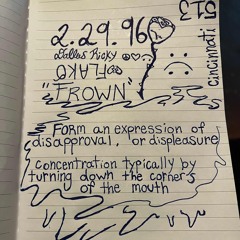 2.29.96
Dallas Ricky
"FROWN"
513
cincinnati
FORM an expression of
disapproval, or displeasure
concentration typically by
turning down the corners
of the mouth